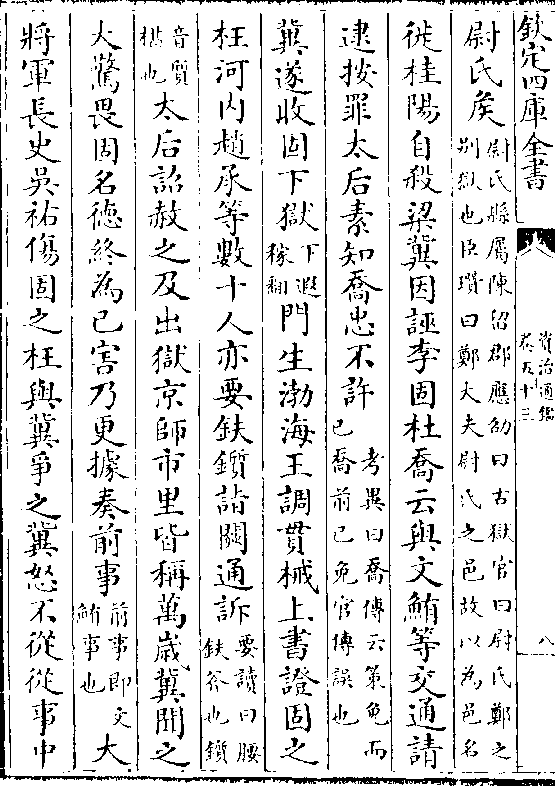 欽定四庫全書
資治通鑑
卷五十三
八
尉氏矦尉氏縣屬陳留郡應劭曰古獄官曰尉氏鄭之别獄也臣瓚曰鄭大夫尉氏之邑故以為邑名
徙桂陽自殺梁冀因誣李固杜喬云與文鮪等交通請
逮按罪太后素知喬忠不許考異曰喬傳云策免而已喬前已免官傳誤也
冀遂收固下獄下遐稼翻門生渤海王調貫械上書證固之
枉河内趙承等數十人亦要鈇鑕詣闕通訴要讀曰腰鈇斧也鑕
音質椹也太后詔赦之及出獄京師市里皆稱萬歲冀聞之
大驚畏固名德終為已害乃更據奏前事前事即文鮪事也大
將軍長史吳祐傷固之枉與冀爭之冀怒不從從事中